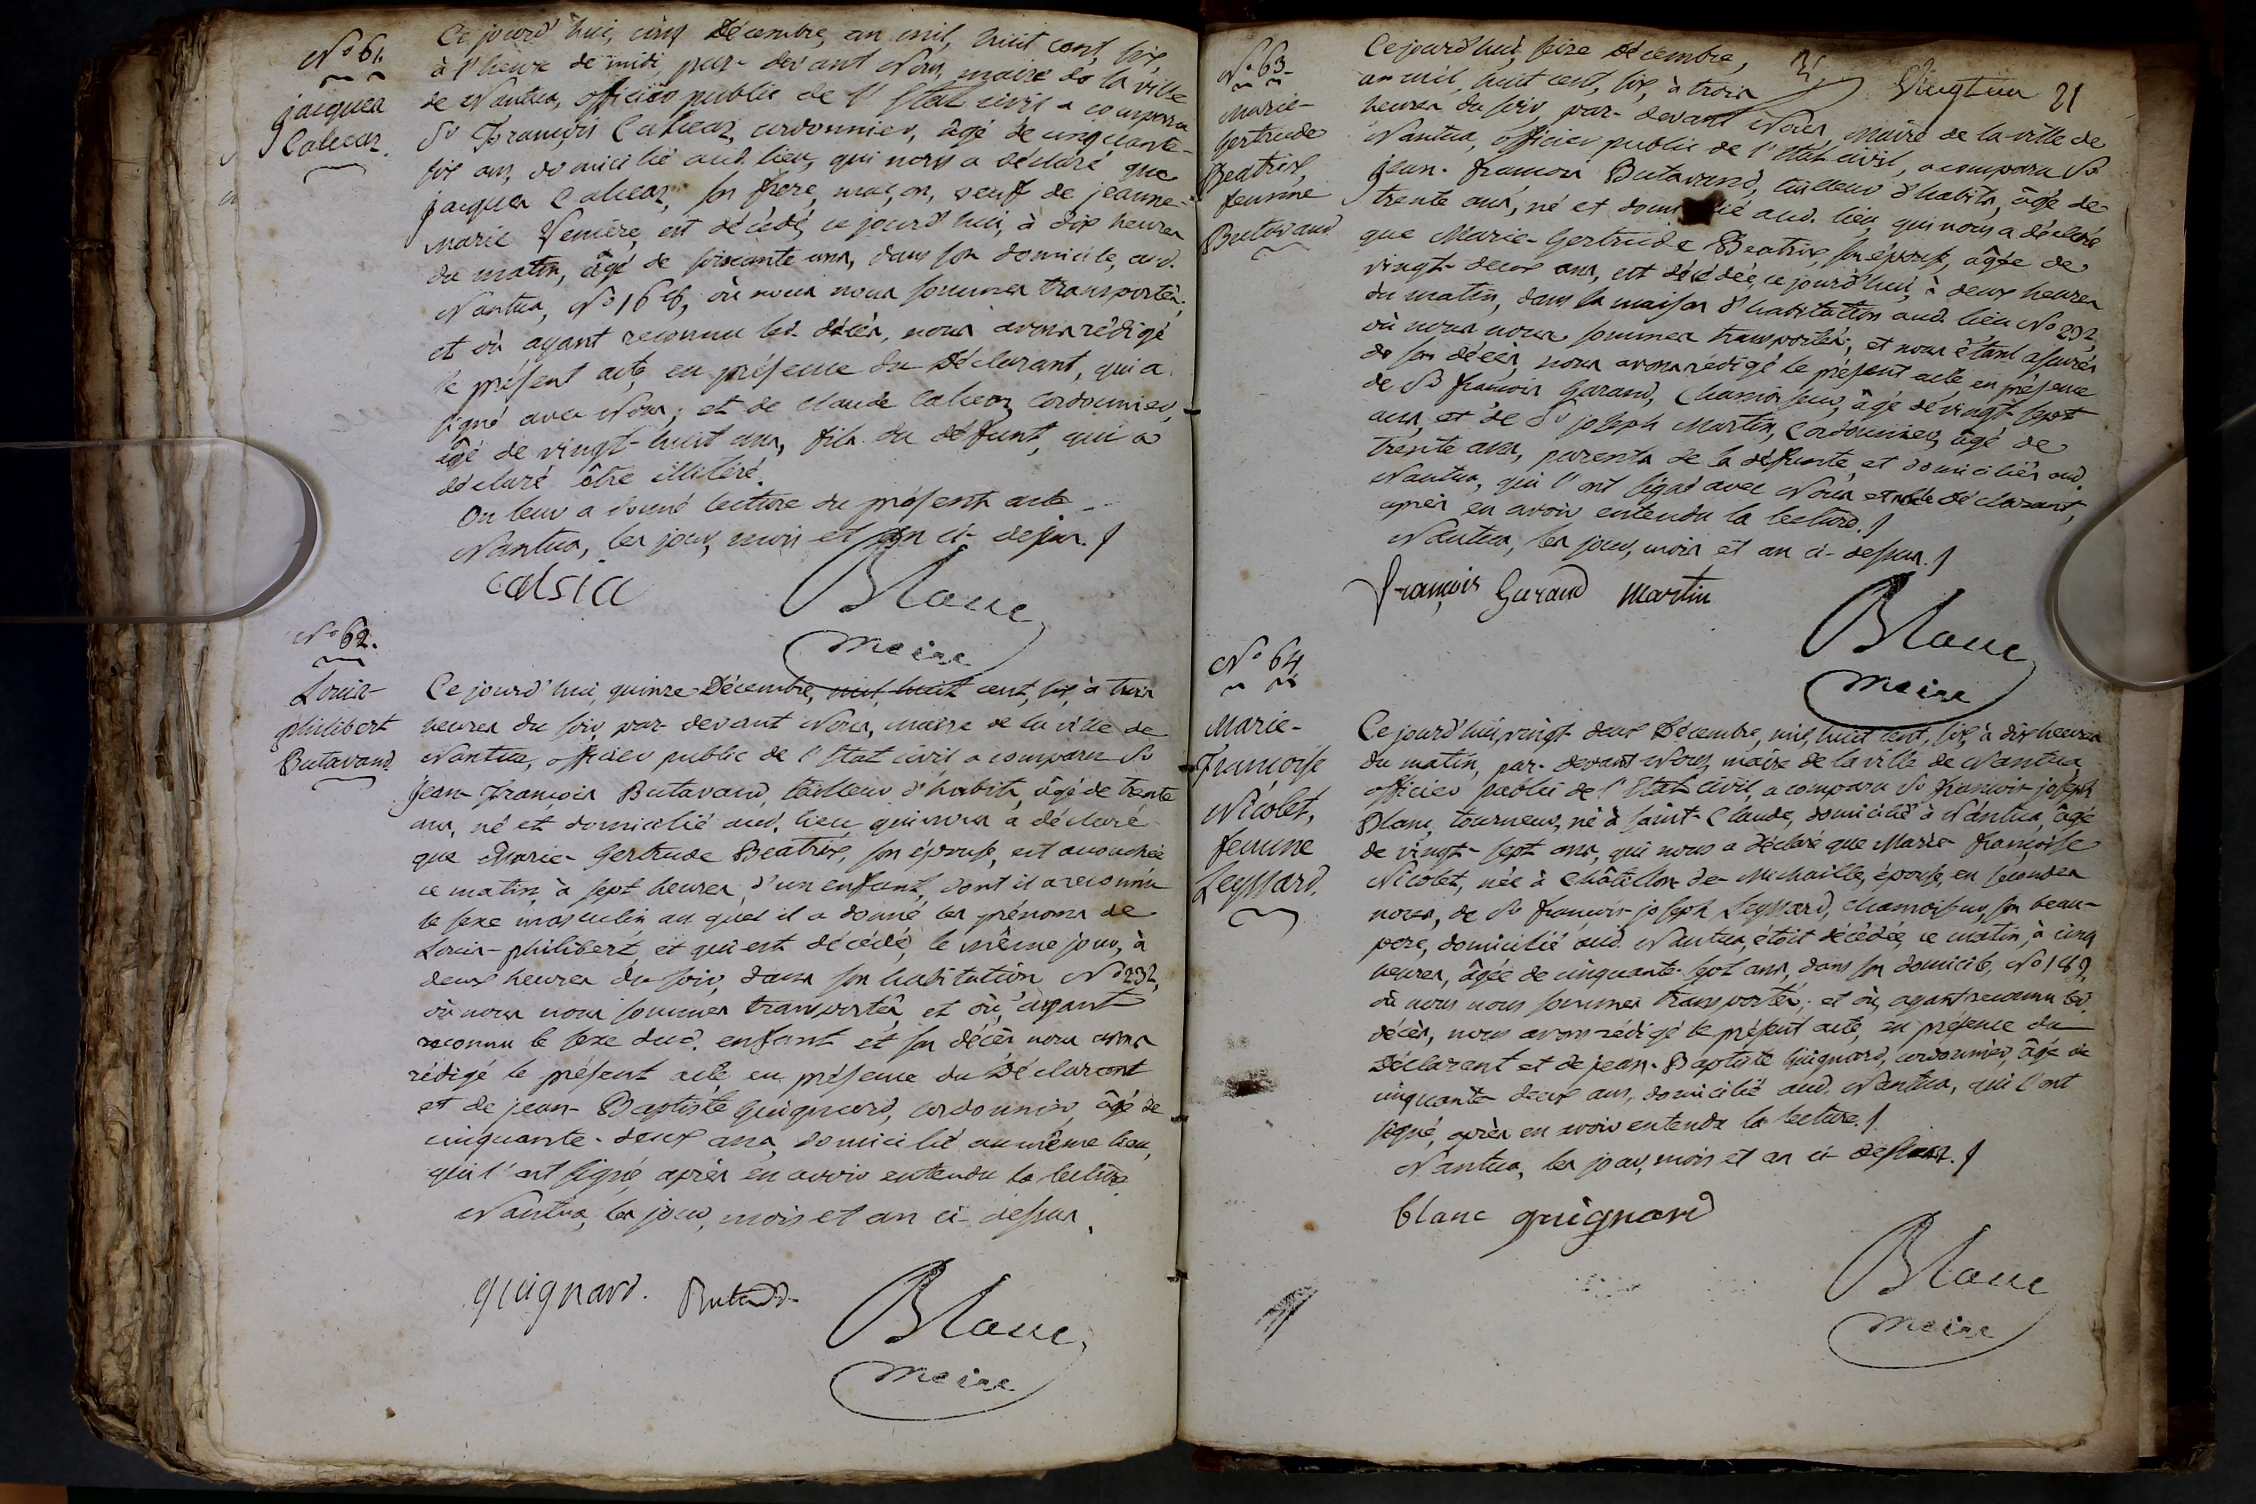 N.o 61.
jacques
Calceaz.
Ce jourd'hui, cinq Décembre, an mil, huit cent, six,
à l'heure de midi, par-devant Nous, maire de la ville
de Nantua, officier public de l'Etat civil a comparu
Sr François Calceaz, cordonnier, âgé de cinquante-
six ans, domicilié aud. lieu, qui nous a déclaré que
jacques Calceaz, son frere, maçon, veuf de jeanne-
Marie Veniere, est décédé, ce jourd'hui, à dix heures
du matin, âgé de soixante ans, dans son domicile, aud.
Nantua, No où nous nous sommes transportés;
et où ayant reconnu led. décès, nous avons rédigé
le présent acte, en présence du Déclarant, qui a
signé avec Nous; et de Claude Calceaz, Cordonnier,
âgé de vingt-huit ans, fils du défunt, qui a
déclaré être illitéré.
On leur a donné lecture du présent acte
Nantua, les jour, mois et an ci-dessus.
calsia
Blanc
Maire
N.o 62.
Louis-
philibert
Butavand.
Ce jourd'hui, quinze Décembre, mil, huit cent, six, à trois
heures du soir, par-devant Nous, maire de la ville de
Nantua, officier public de l'Etat civil a comparu Sr
Jean-François Butavand, tailleur d'habits, âgé de trente
ans, né et domicilié aud. lieu, qui nous a déclaré
que Marie-Gertrude Beatrix, son épouse, est accouchée
ce matin, à sept heures, d'un enfant, dont il a reconnu
le sexe masculin au quel il a donné les prénoms de
Louis-philibert, et qui est décédé, le même jour, à
deux heures du soir, dans son habitation No 232,
où nous nous sommes transportés, et où, ayant
reconnu le sexe dud. enfant et son décès nous avons
rédigé le présent acte, en présence du Déclarant
et de jean-Baptiste Guignard, cordonnier, âgé de
cinquante-deux ans, domicilié au même lieu,
qui l'ont signé, après en avoir entendu la lecture
Nantua, les jour, mois et an ci-dessus.
guignard. Butavd
Blanc
Maire
Vingt un 21
N.o 63.
Marie-
Gertrude
Beatrix,
femme
Butavand
Ce jourd'hui, seize Décembre,
an mil, huit cent, six, à trois
heures du soir, par-devant Nous, Maire de la ville de
Nantua, officier public de l'Etat civil, a comparu Sr
jean-françois Butavand, tailleur d'habits, âgé de
trente ans, né et domicilié aud. lieu, qui nous a déclaré
que Marie-Gertrude Beatrix, son épouse, âgée de
vingt-deux ans, est décédée, ce jourd'hui, à deux heures
du matin, dans sa maison d'habitation aud. lieu No 232,
où nous nous sommes transportés; et nous étant assurés
de son décès, nous avons rédigé le présent acte, en présence
de Sr françois Garand, Chamoiseur, âgé de vingt-sept
ans, et de Sr joseph Martin, Cordonnier, âgé de
trente ans, parents de la défunte, et domiciliés aud.
Nantua, qui l'ont signé avec Nous et le Déclarant,
après en avoir entendu la lecture.
Nantua, les jour, mois et an ci-dessus.
françois Garand Martin
Blanc
Maire
N.o 64
Marie-
Françoise
Nicolet,
femme
Leyssard.
Ce jourd'hui, vingt deux Décembre, mil, huit cent, six, à dix heures
du matin, par-devant Nous, maire de la ville de Nantua,
officier public de l'Etat civil, a comparu Sr françois-joseph
Blanc, tourneur, né à Saint-Claude, domicilié à Nantua, âgé
de vingt-sept ans, qui nous a déclaré que Marie-françoise
Nicolet, née à Châtillon-de-Michaille, épouse, en secondes
noces, de Sr françois-joseph Leyssard, Chamoiseur, son beau-
pere, domicilié aud. Nantua, étoit décédée, ce matin, à cinq
heures, âgée de cinquante-sept ans, dans son domicile, No
où nous nous sommes transportés; et où, ayant reconnu led.
décès, nous avons rédigé le présent acte, en présence du
Déclarant et de jean-Baptiste Guignard, cordonnier, âgé de
cinquante-deux ans, domicilié aud. Nantua, qui l'ont
signé, après en avoir entendu la lecture.
Nantua, les jour, mois et an ci-dessus.
blanc guignard
Blanc
Maire